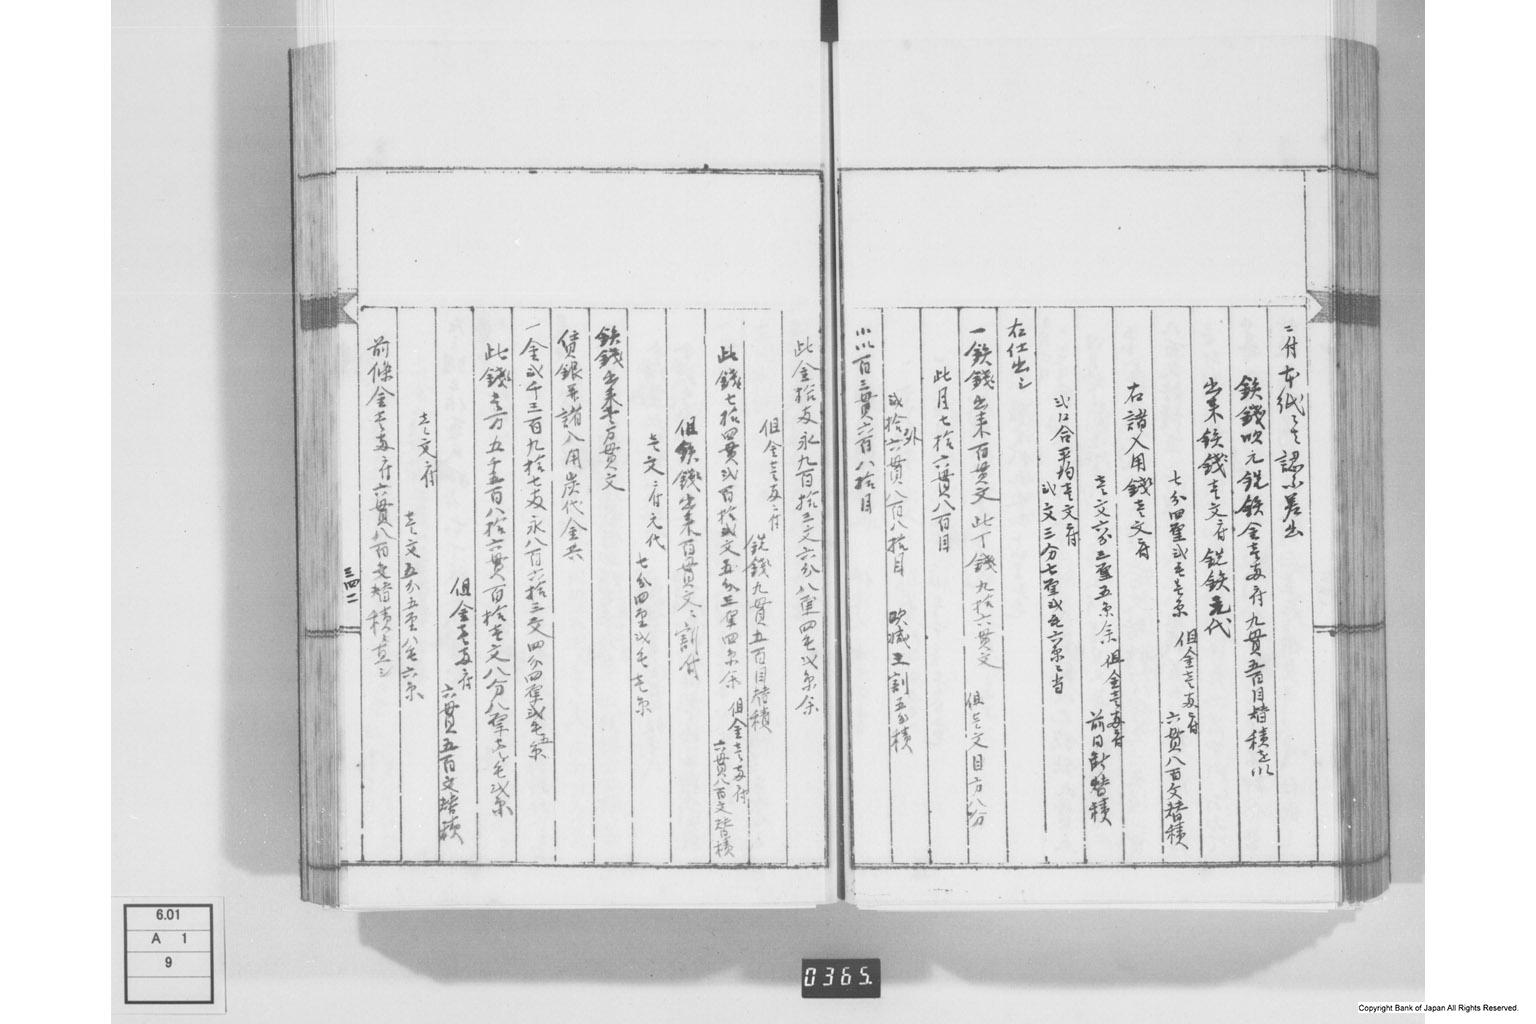 鉄銭吹元銑鉄金壱両ニ付九貫五百目替積を以
出来鉄銭壱文ニ付 銑鉄元代
七分四厘弐毛壱糸 但金壱両ニ付
六貫八百文替積
右諸入用銭壱文ニ付
壱文六分三厘五糸余 但金壱両ニ付
弐口合平均壱文ニ付
弐文三分七厘弐毛六糸ニ当
右仕出シ
一鉄銭出来百貫文 此丁銭九拾六貫文 但壱文目方八分
此目七拾六貫八百目
外
弐拾六貫八百八拾目 吹減三割五分積
小以百三貫六百八拾目
此金拾両永九百拾三文六分八厘四毛弐糸余
但金壱両ニ付
銑鉄九貫五百目替積
此銭七拾四貫弐百拾弐文五分三厘四糸余 但金壱両ニ付
六貫八百文替積
但鉄銭出来百貫文ニ割付
壱文ニ付元代
七分四厘弐毛壱糸
鉄銭出来壱万貫文
賃銀并諸入用炭代金共
一金弐千三百九拾七両永八百六拾三文四分四厘弐毛五糸
此銭壱万五千五百八拾六貫百拾壱文八分八厘
但金壱両ニ付
六貫五百文替積
壱文ニ付
壱文五分五厘八毛六糸
前條金壱両ニ付六貫八百文替積ニ直シ
三四二
6.01
A 1
9
0365.
Copyright Bank of Japan All Rights Reserved.